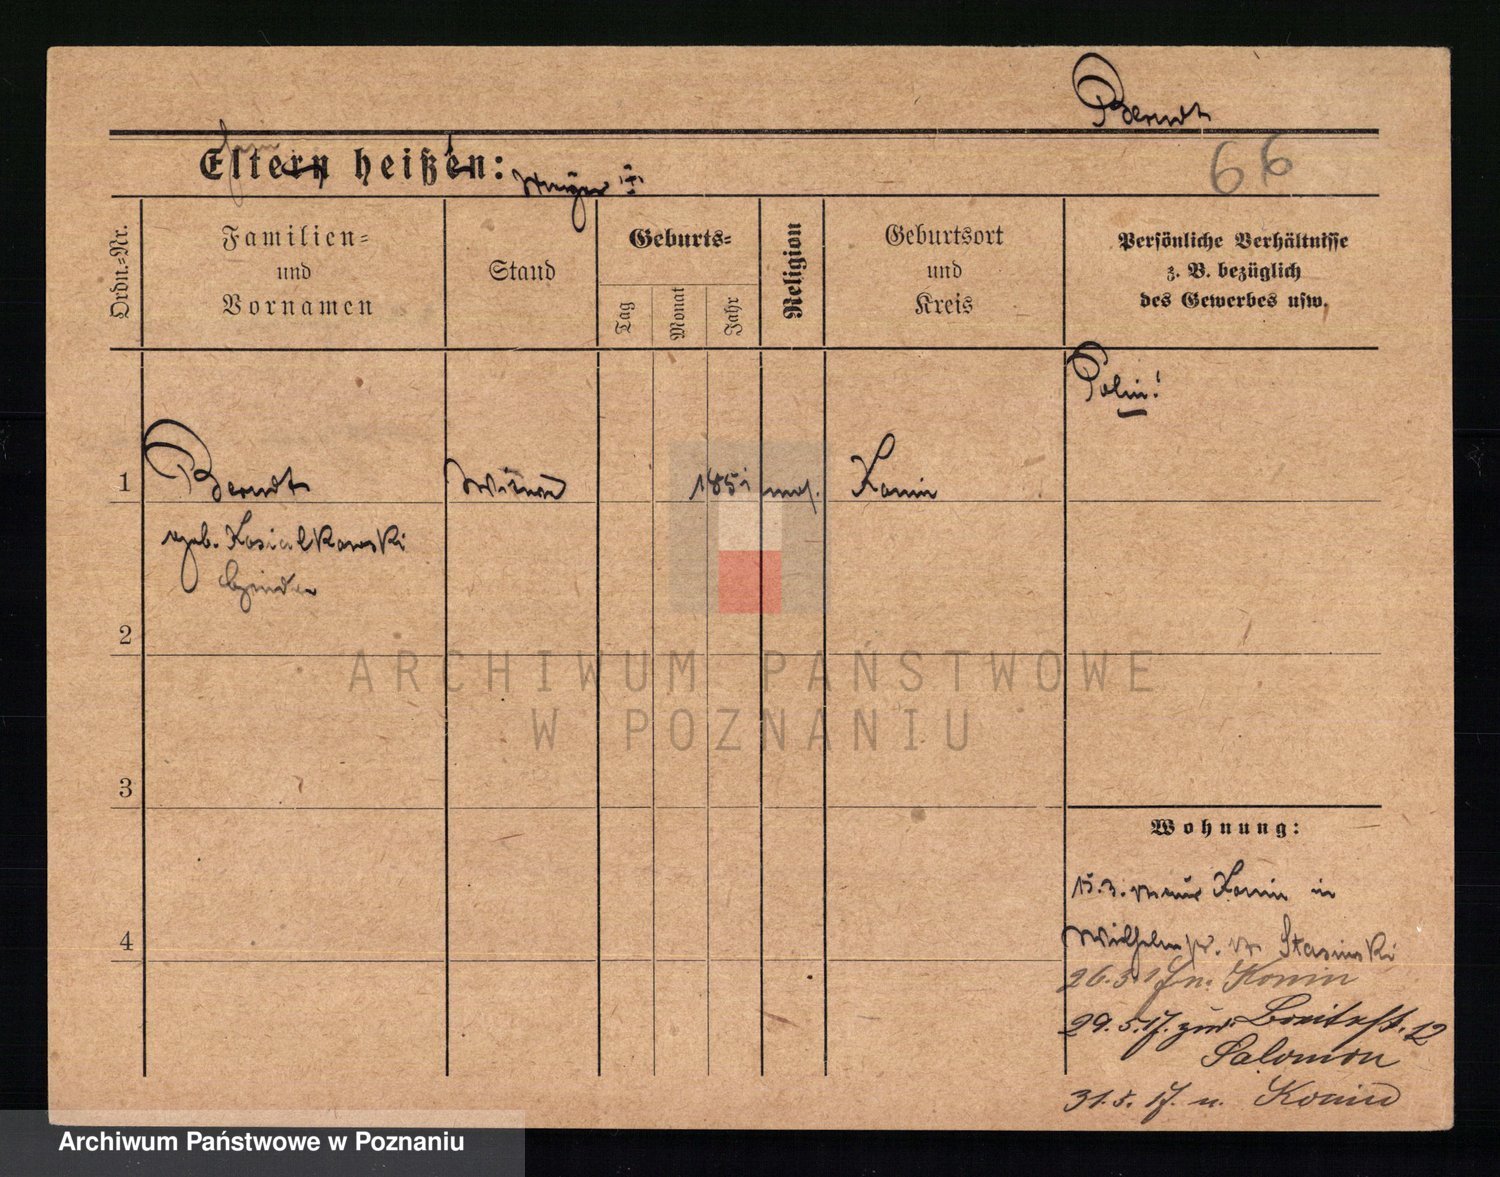 Berndt
66
Eltern heißen:
Ordn.-Nr.
Familien-
und
Vornamen
Stand
Geburts-
Tag
Monat
Jahr
Religion
Geburtsort
und
Kreis
Persönliche Verhältnisse
z. B. bezüglich
des Gewerbes usw.
Polin!
1
Berndt
Witwe
1851
mos.
Konin
geb. Kosialkowski
2
3
4
Wohnung:
15.3. Konin in
Wilhelmstr. Stasinski
26.3.17 n. Konin
29.5.17. zur. Breitestr. 12
Salomon
31.5.17. n. Konin
ARCHIWUM PAŃSTWOWE
W POZNANIU
Archiwum Państwowe w Poznaniu